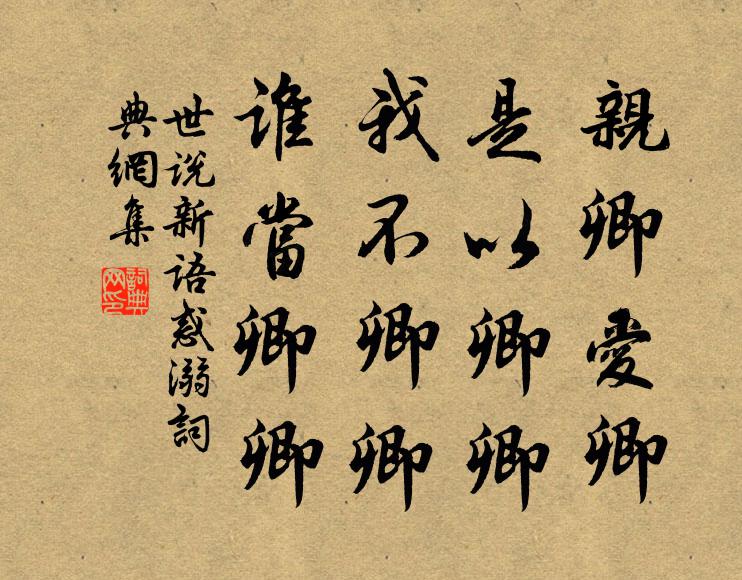 親卿愛卿
是以卿卿
我不卿卿
谁當卿卿
世说新语惑溺詞
典網集
詞典网印